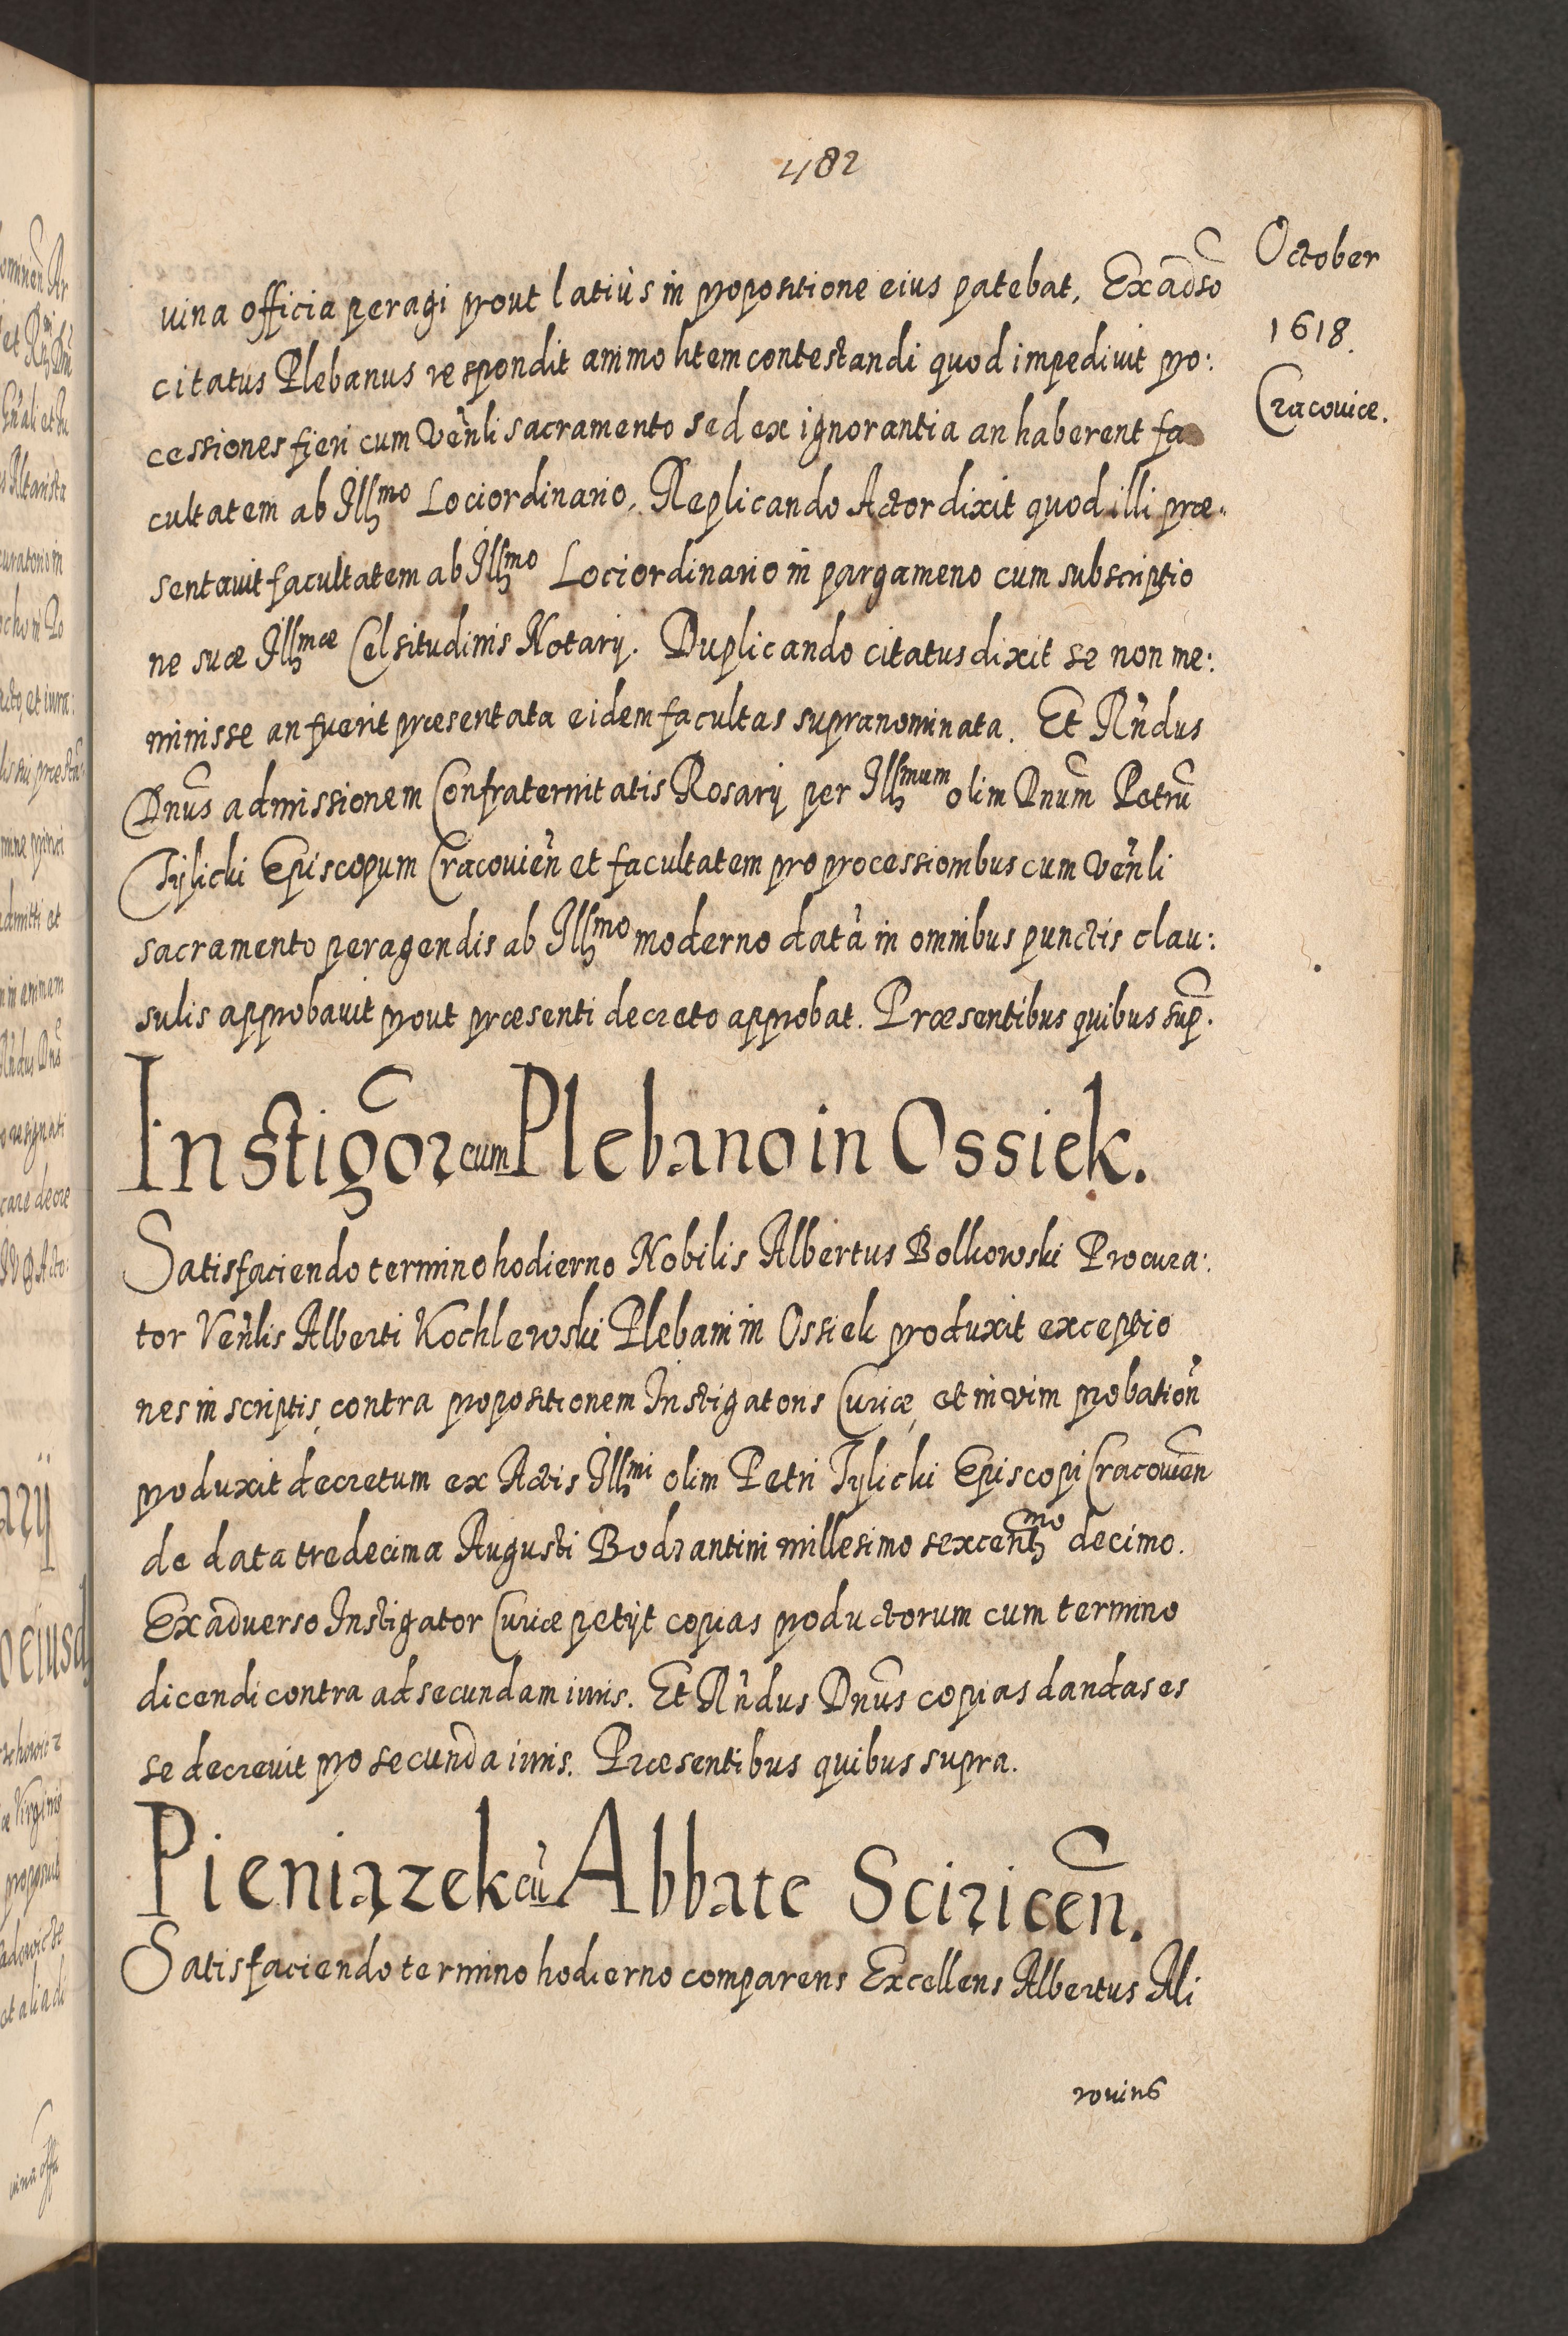 482
October
1618.
Cracouiae.
uina officia peragi prout latiùs in propositione eius patebat, Ex adso
citatus Plebanus respondit animo litem contestandi quod impediuit pro:
cessiones fieri cum Venli sacramento sed ex ignorantia an haberent fa
cultatem ab Illmo Lociordinario, Replicando Actor dixit quod illi prae„
sentauit facultatem ab Illmo Lociordinario in pargameno cum subscriptio
ne suae Illmae Celsitudinis Notarij. Duplicando citatus dixit se non me:
minisse an fuerit praesentata eidem facultas supranominata. Et Rndus
Dnus admissionem Confraternitatis Rosarij per Illmum olim Dnum Petru
Tylicki Episcopum Cracouien et facultatem pro processionibus cum Venli
sacramento peragendis ab Illmo moderno datà in omnibus punctis clau:
sulis approbauit prout praesenti decreto approbat. Praesentibus quibus sup.
Instigor cum Plebano in Ossiek.
Satisfaciendo termino hodierno Nobilis Albertus Bolkowski Procura:
tor Venlis Alberti Kochlewski Plebani in Ossiek produxit exceptio
nes in scriptis, contra propositionem Instigatoris Curiae, et in vim probation
produxit decretum ex Actis Illmi olim Petri Tylicki Episcopi Cracouien
de data tredecima Augusti Bodzantini millesimo sexcentmo decimo.
Ex aduerso Instigator Curiae petijt copias productorum cum termino
dicendi contra ad secundam iuris. Et Rndus Dnus copias dandas es
se decreuit pro secunda iuris. Praesentibus quibus supra.
Pieniązek cu Abbate Sciricen.
Satisfaciendo termino hodierno comparens Excellens Albertus Ali
rouius